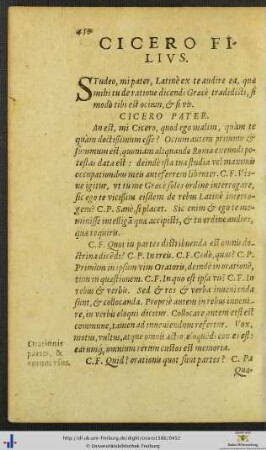 450
CICERO FI-
LIVS.
STudeo, mi pater, Latinè ex te audire ea, quæ
mihi tu de ratione dicendi Græcè tradidisti, si
modò tibi est ocium, & si vis.
CICERO PATER.
An est, mi Cicero, quod ego malim, quàm te
quàm doctissimum esse? Ocium autem primùm est
summum est, quoniam aliquando Roma exeundi po-
testas data est: deinde ista tua studia vel maximis
occupationibus meis anteferrem libenter. C.F. Vis-
ne igitur, vt tu me Græcè soles ordine interrogare,
sic ego te vicissim eisdem de rebus Latinè interro-
gem? C.P. Sanè, si placet. Sic enim & ego te me-
minisse intelligã quæ accepisti, & tu ordine audies,
quæ requiris.
C.F. Quot in partes distribuenda est omnis do-
ctrina dicẽdi? C.P. In treis. C.F. Cedò, quas? C.P.
Primùm in ipsam vim Oratoris, deinde in orationẽ,
tum in quæstionem. C.F. In quo est ipsa vis? C.P. In
rebus & verbis. Sed & res & verba inuenienda
sunt, & collocanda. Propriè autem in rebus inueni-
re, in verbis eloqui dicitur. Collocare autem etsi est
commune, tamen ad inueniendum refertur. Vox,
motus, vultus, atque omnis actio, eloquẽdi comes est:
earumq́; omnium rerum custos est memoria.
Orationis
partes, &
C.F. Quid? orationis quot sunt partes? C.P.
Qua-
http://dl.ub.uni-freiburg.de/diglit/cicero1588/0452
© Universitätsbibliothek Freiburg
Baden-Württemberg